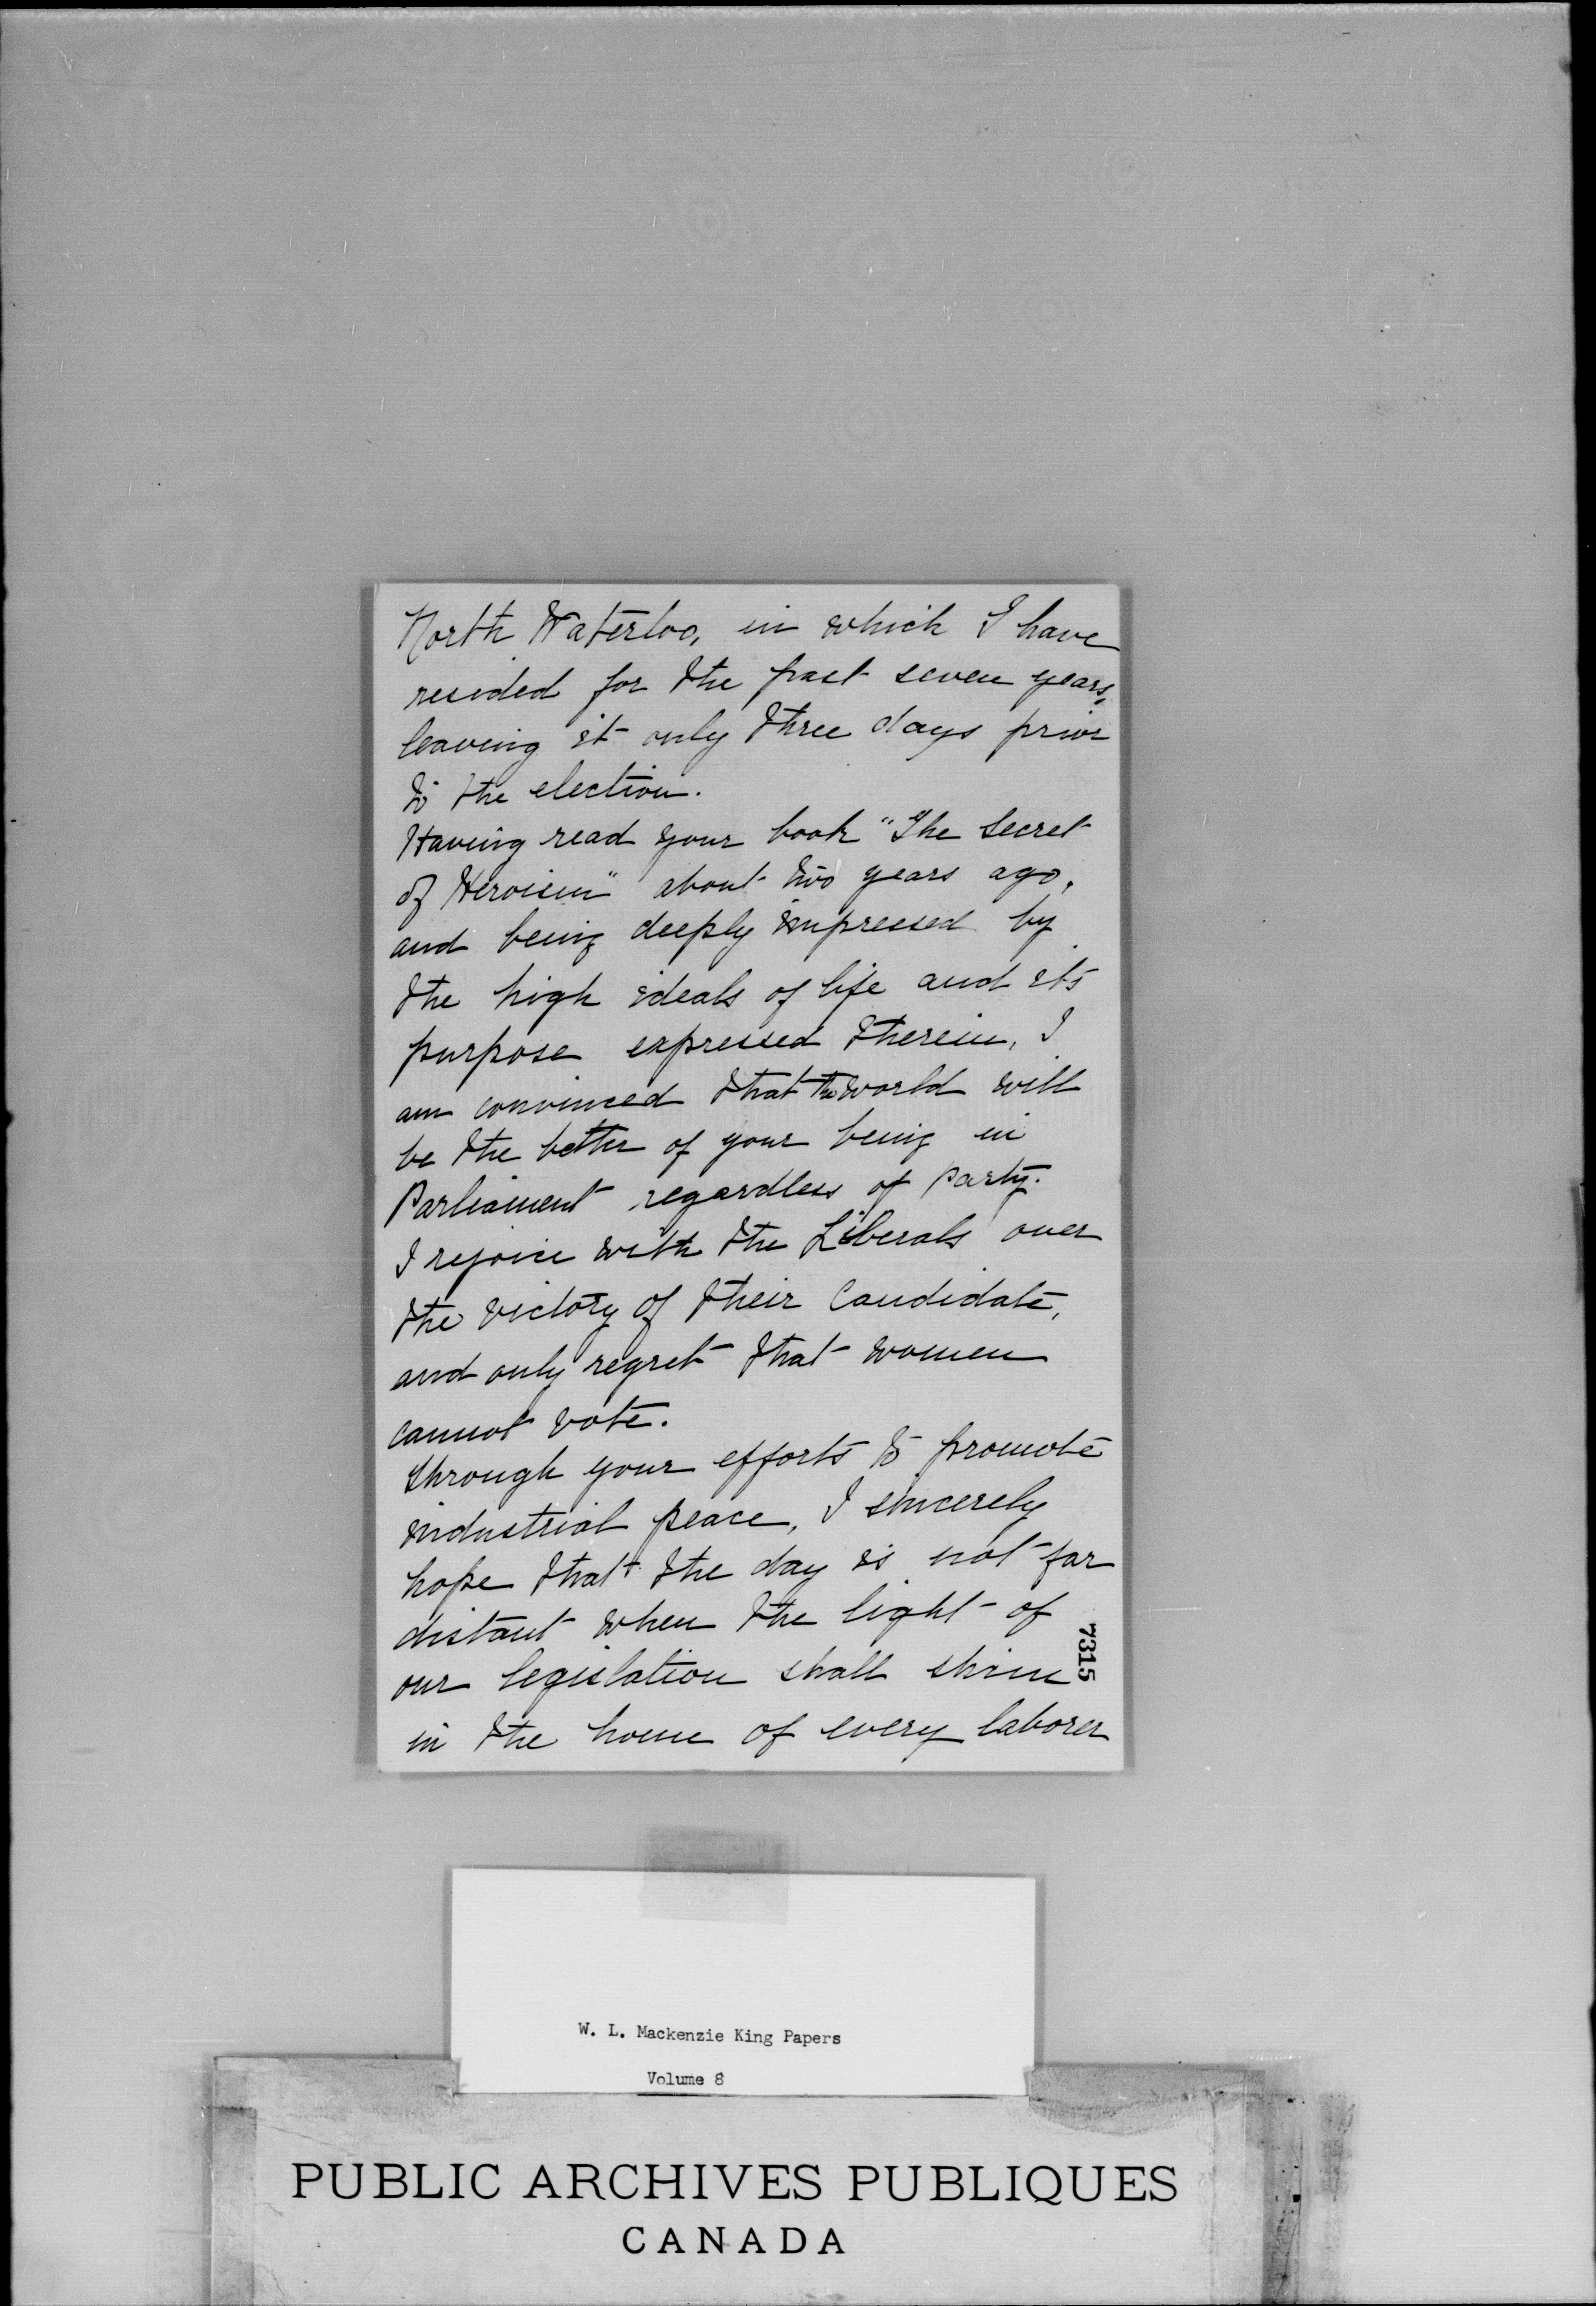 North Waterloo, in which I have
resided for the past seven years,
leaving it only three days prior
to the election.
Having read your book "The Secret
of Heroism" about two years ago,
and being deeply impressed by
the high ideals of life and its
purpose expressed therein, I
am convinced that the world will
be the better of your being in
Parliament regardless of party.
I rejoice with the Liberals over
the victory of their Candidate,
and only regret that women
cannot vote.
Through your efforts to promote
industrial peace, I sincerely
hope that the day is not far
distant when the light of
our legislation shall shine
in the home of every laborer
7315
W. L. Mackenzie King Papers
Volume 8
PUBLIC ARCHIVES PUBLIQUES
CANADA